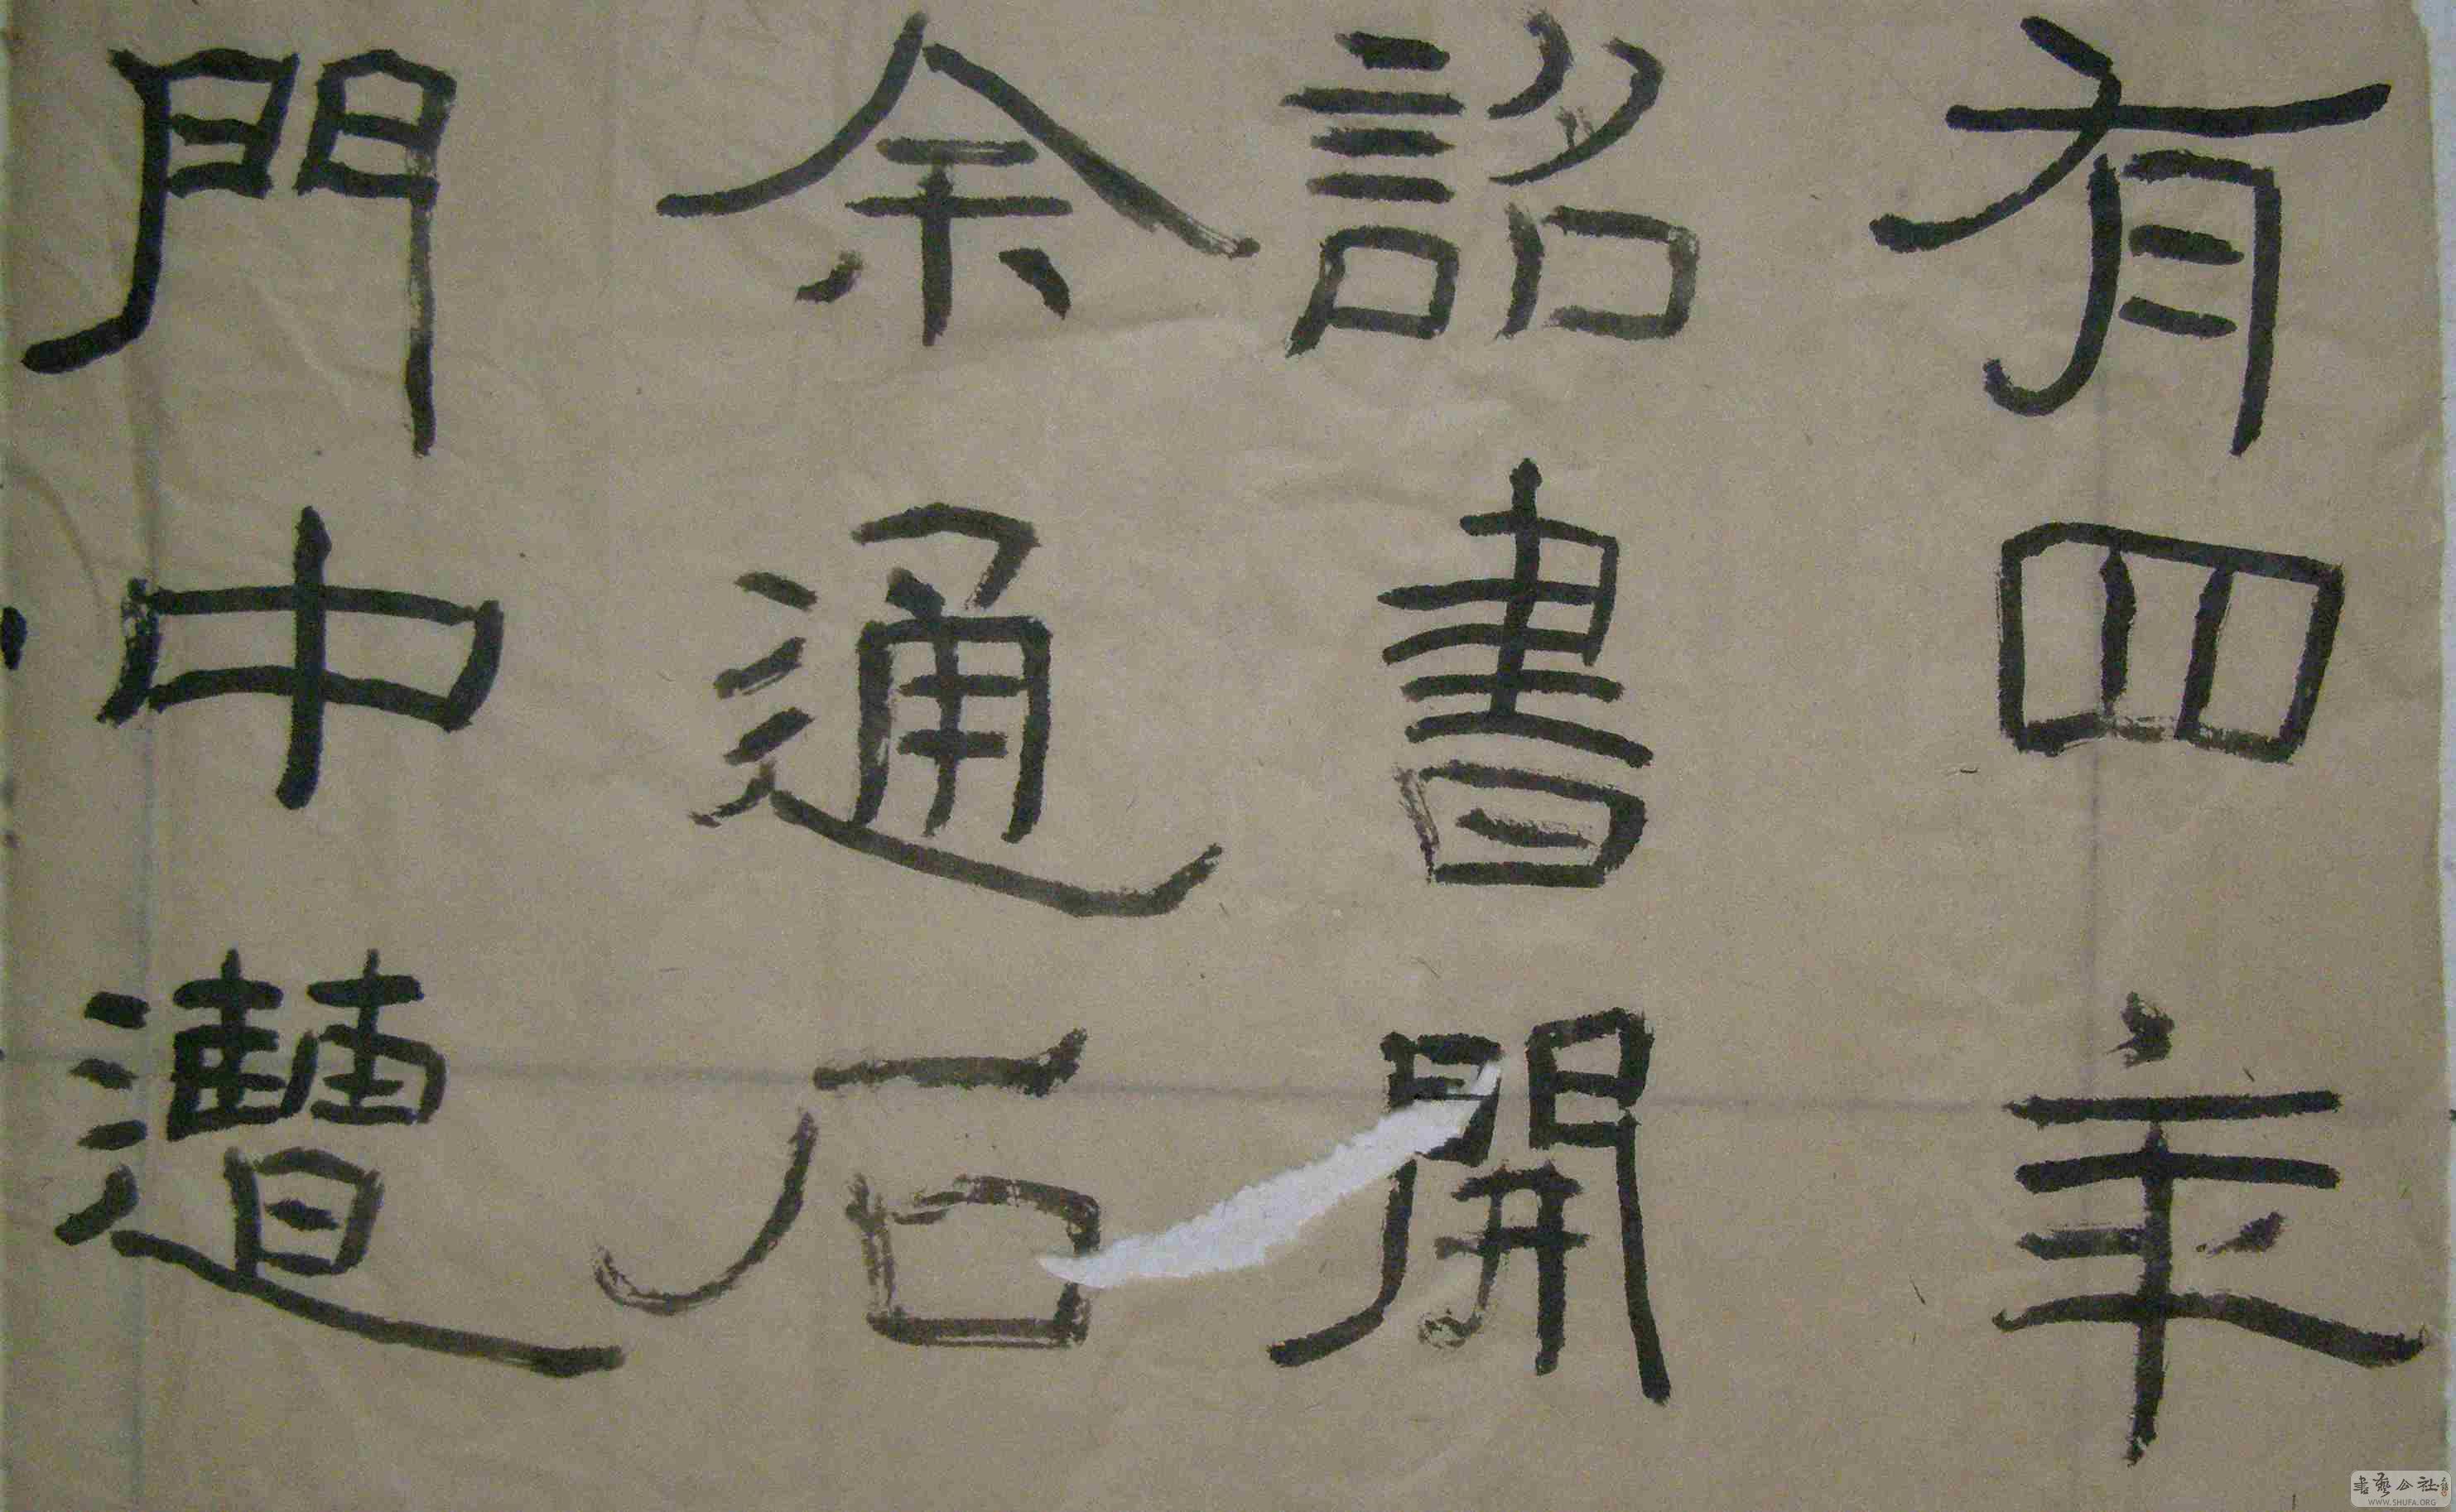 有四年
詔書開
余通石
門中遭
書藝公社
WWW.SHUFA.ORG